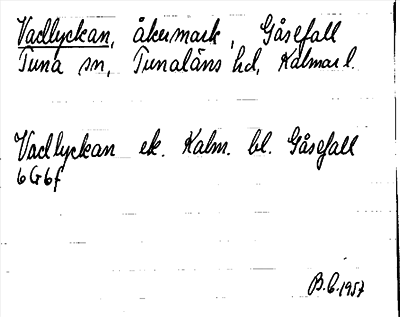 Vadlyckan, åkermark, Gåsefall
Tuna sn, Tunaläns hd, Kalmar l.
Vadlyckan ek. Kalm. bl. Gåsefall
6G6f
B.C. 1957